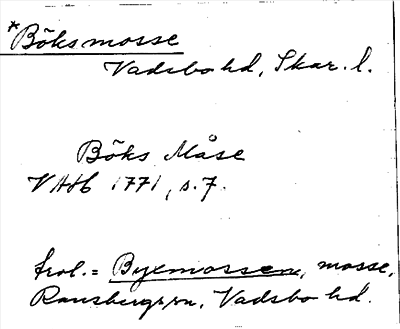 *Böksmosse
Vadsbo hd, Skar. l.
Böks Måse
VAHb 1771, s. 7.
trol. = Byxmossen, mosse,
Ransbergs sn, Vadsbo hd.